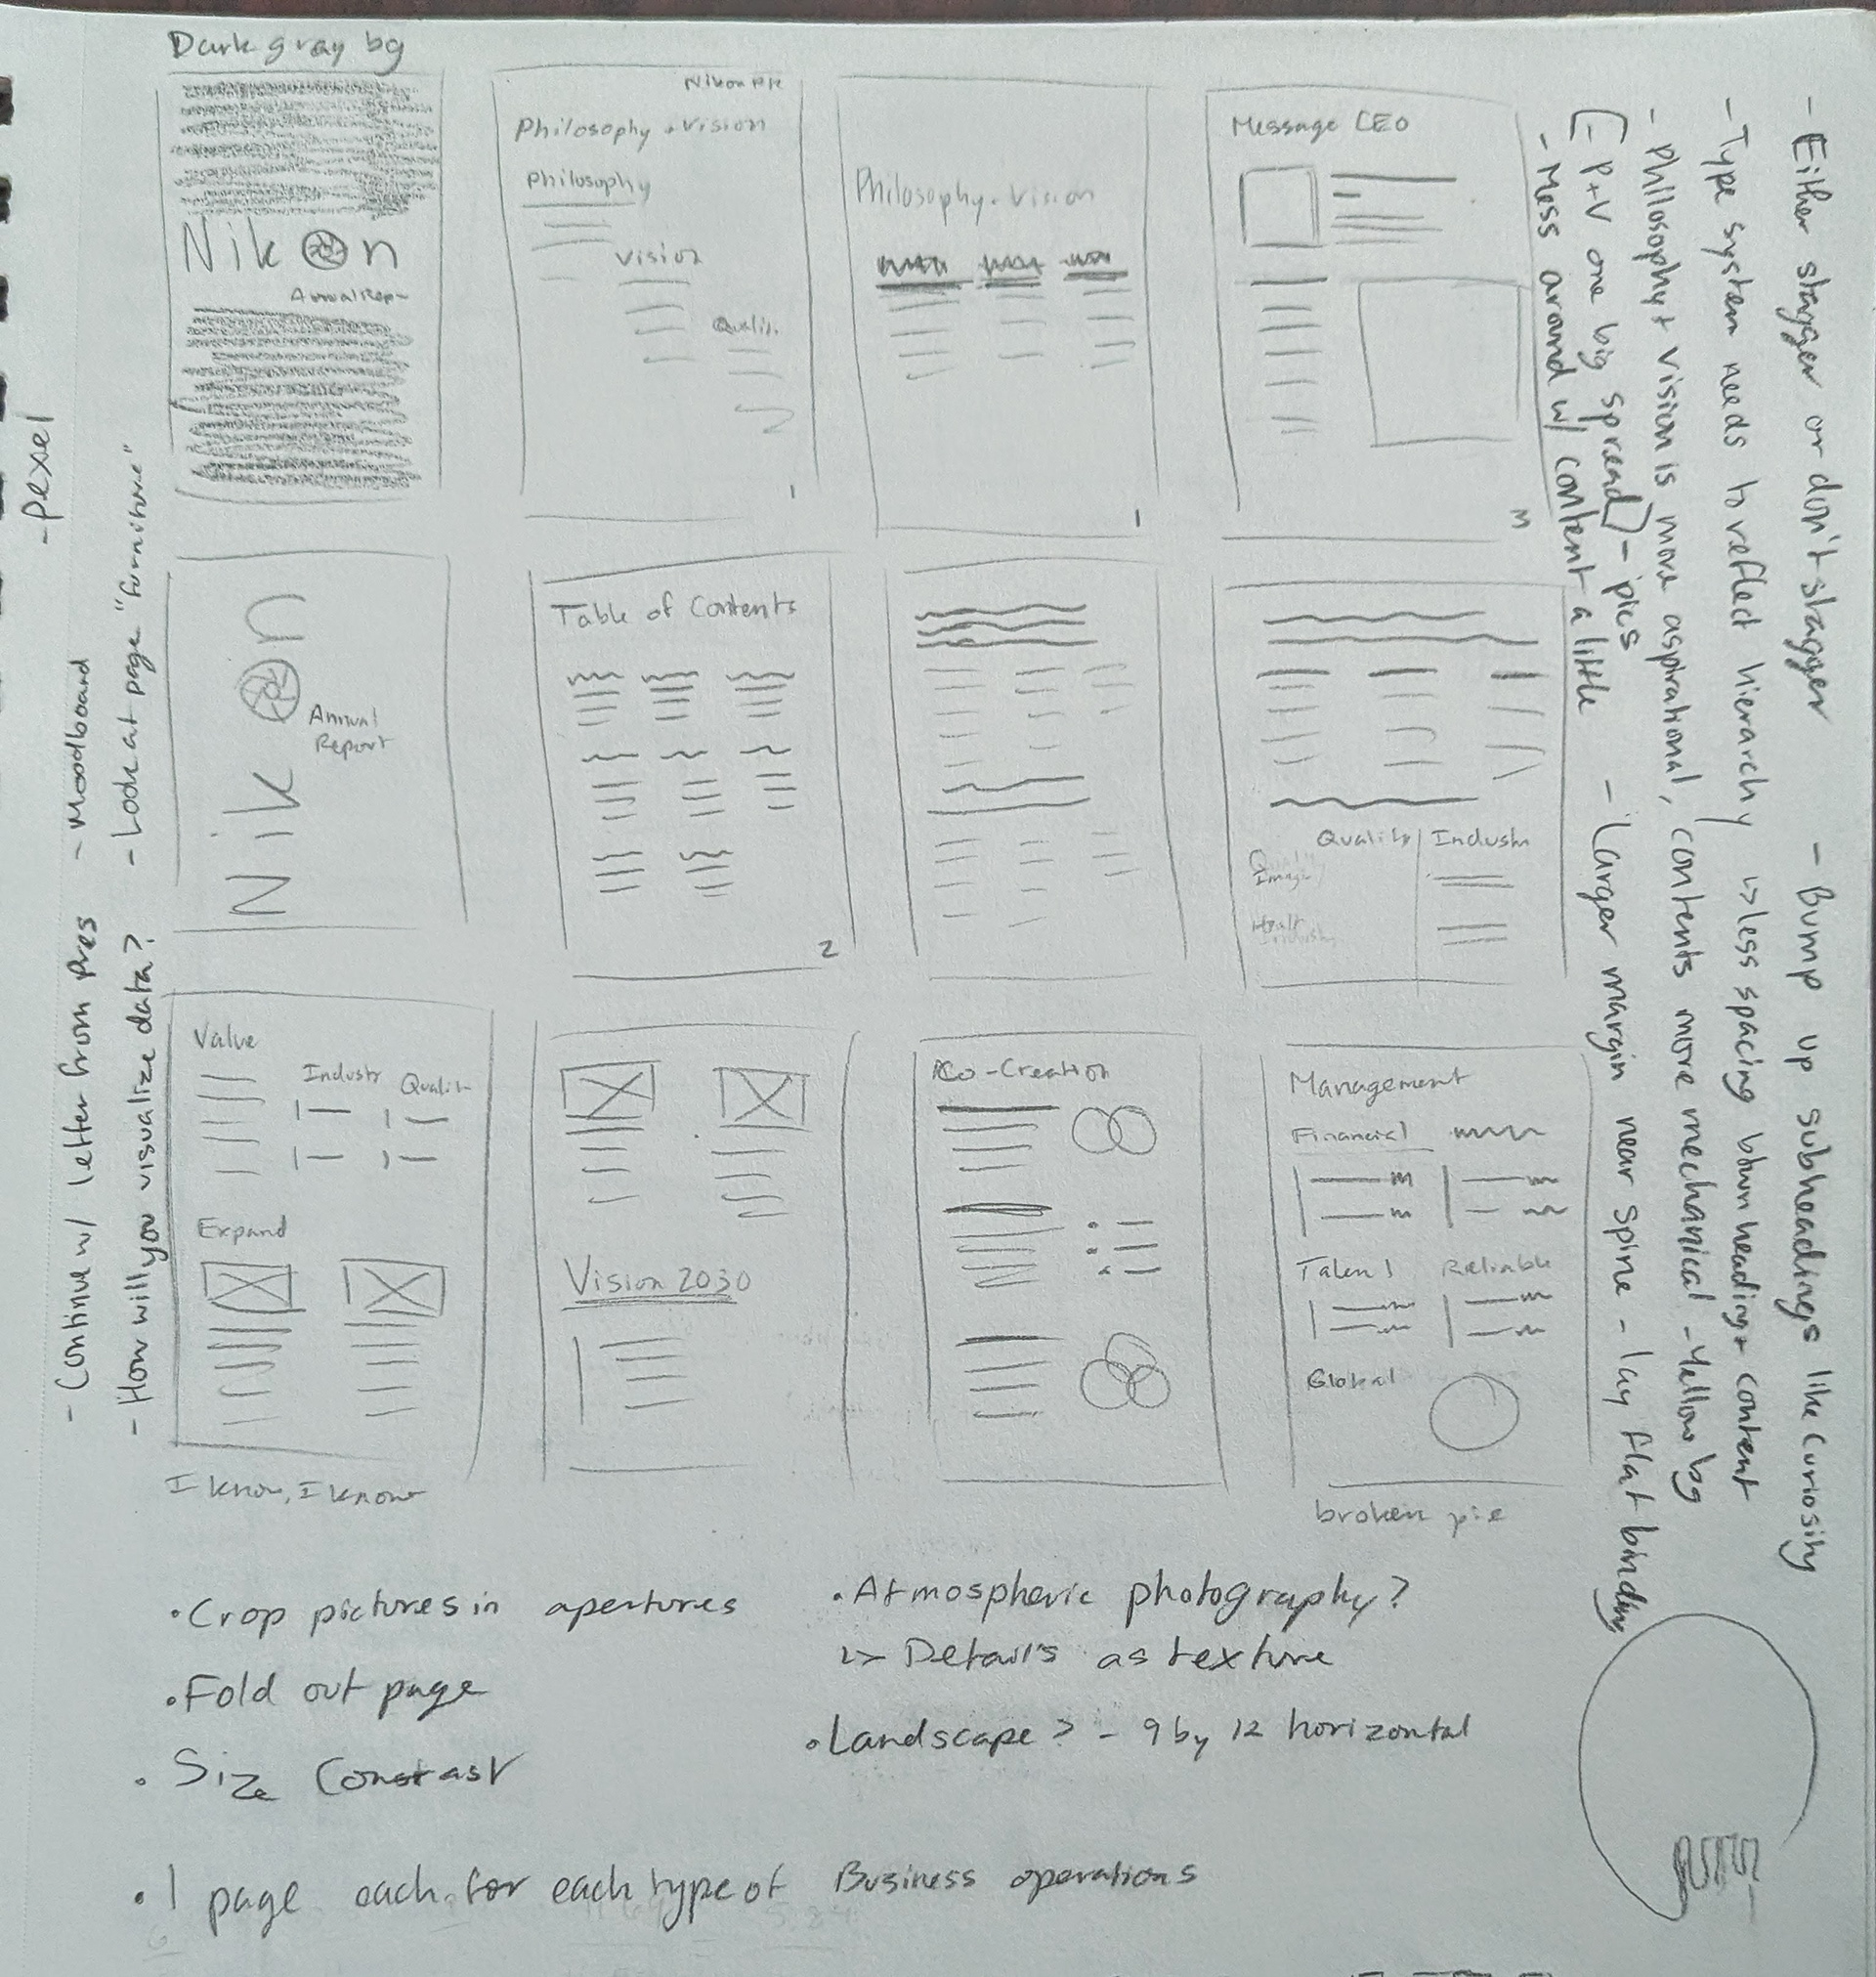 Dark gray bg
Nikon
Annual Rep-
Nikon
Philosophy + Vision
Philosophy
Vision
Qualit.
1
Philosophy + Vision
1
Message CEO
3
Nikon
Annual
Report
Table of Contents
2
Quality Industr
Quality
Imagi
Health
Industry
Value
Industr Qualit-
Expand
I know, I know
Vision 2030
Co-Creation
Management
Financial
Talent Reliable
Global
broken pie
• Crop pictures in apertures
• Fold out page
• Size Constast
• Atmospheric photography?
↳ Details as texture
• Landscape? - 9 by 12 horizontal
• 1 page each for each type of Business operations
- Pexel
- Continue w/ letter from pres - Moodboard
- How will you visualize data? - Look at page "furniture"
- Either stagger or don't stagger - Bump up subheadings like curiosity
- Type system needs to reflect hierarchy ↳ less spacing btwn heading + content
- Philosophy + vision is more aspirational, contents more mechanical - Yellow bg
[- P+V one big spread] - pics
- Mess around w/ content a little - Larger margin near spine - lay flat binding